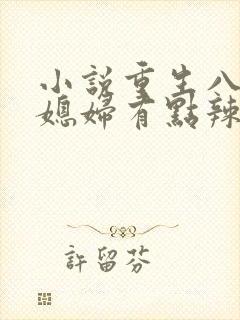 小說重生八
媳婦有點辣
許留芬